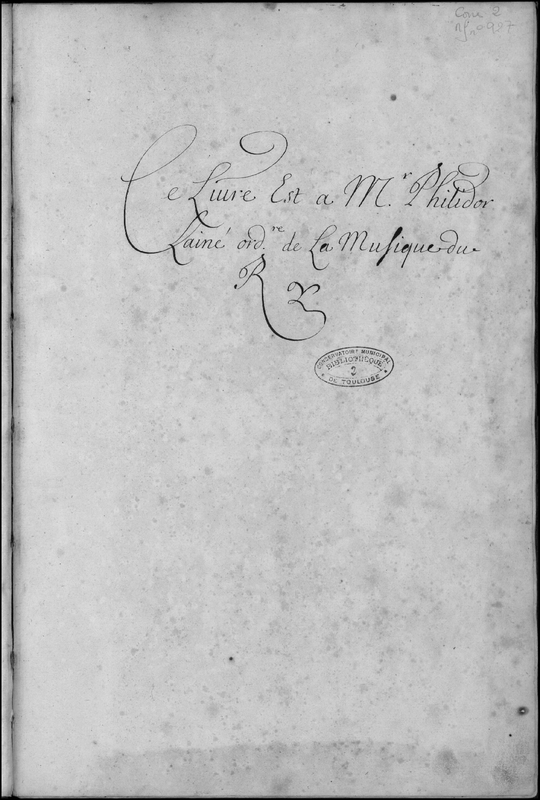 Cons 2
Ce Liure Est a M.r Philidor
Lainé ord.re de La Musique du
R
CONSERVATOIRE MUNICIPAL
BIBLIOTHEQUE
2
DE TOULOUSE